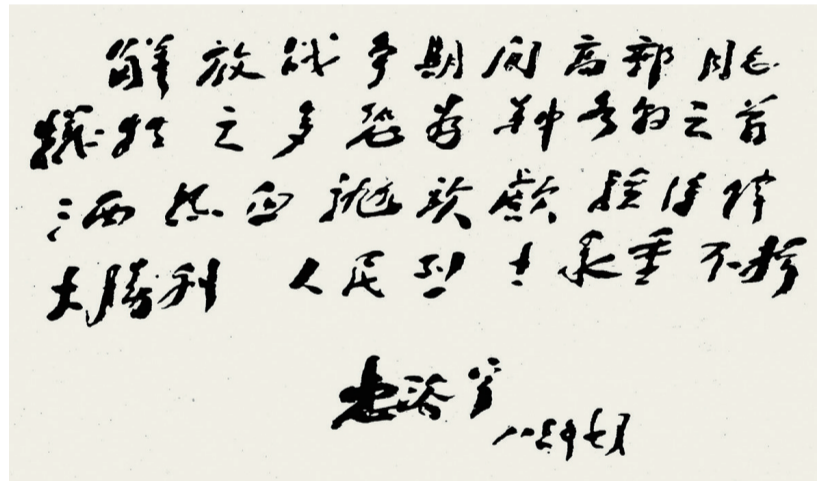 解放战争期间高郵同志
犧牲之多恐为華中各县之首
洒热血抛头颅赢得伟
大勝利 人民烈士永垂不朽
惠浴宇
八三年七月